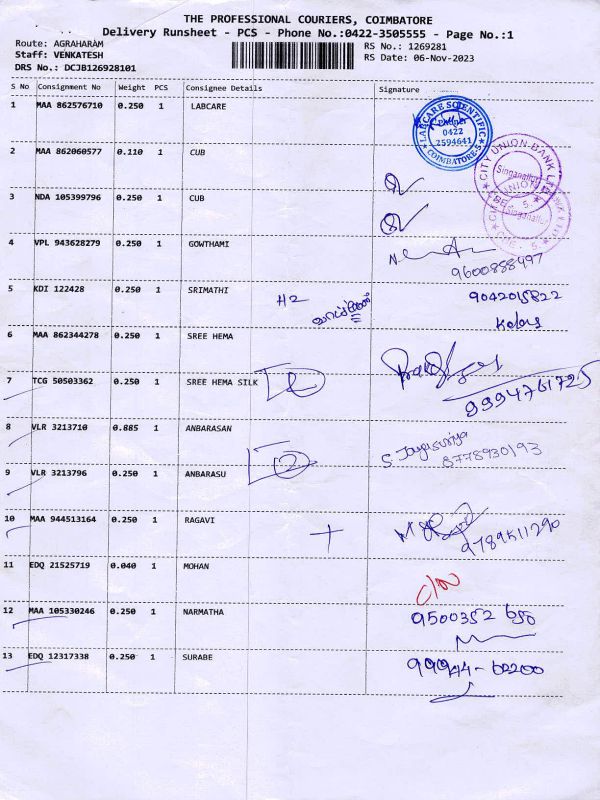 THE PROFESSIONAL COURIERS, COIMBATORE
Delivery Runsheet - PCS - Phone No.:0422-3505555 - Page No.:1
Route: AGRAHARAM RS No.: 1269281
Staff: VENKATESH RS Date: 06-Nov-2023
DRS No.: DCJB126928101
S No Consignment No Weight PCS Consignee Details Signature
1 MAA 862576710 0.250 1 LABCARE
LABCARE SCIENTIFIC
0422
2594641
COIMBATORE
2 MAA 862060577 0.110 1 CUB
CITY UNION BANK
Singanallur
3 NDA 105399796 0.250 1 CUB
Singanallur
CBE - 5.
4 VPL 943628279 0.250 1 GOWTHAMI
9600888497
5 KDI 122428 0.250 1 SRIMATHI H2 9042015822
6 MAA 862344278 0.250 1 SREE HEMA
7 TCG 50503362 0.250 1 SREE HEMA SILK
9994761725
8 VLR 3213710 0.885 1 ANBARASAN S. Jayasuriya
8778930193
9 VLR 3213796 0.250 1 ANBARASU
10 MAA 944513164 0.250 1 RAGAVI
9789511290
11 EDQ 21525719 0.040 1 MOHAN
12 MAA 105330246 0.250 1 NARMATHA 9500352 650
13 EDQ 12317338 0.250 1 SURABE 99944-02200